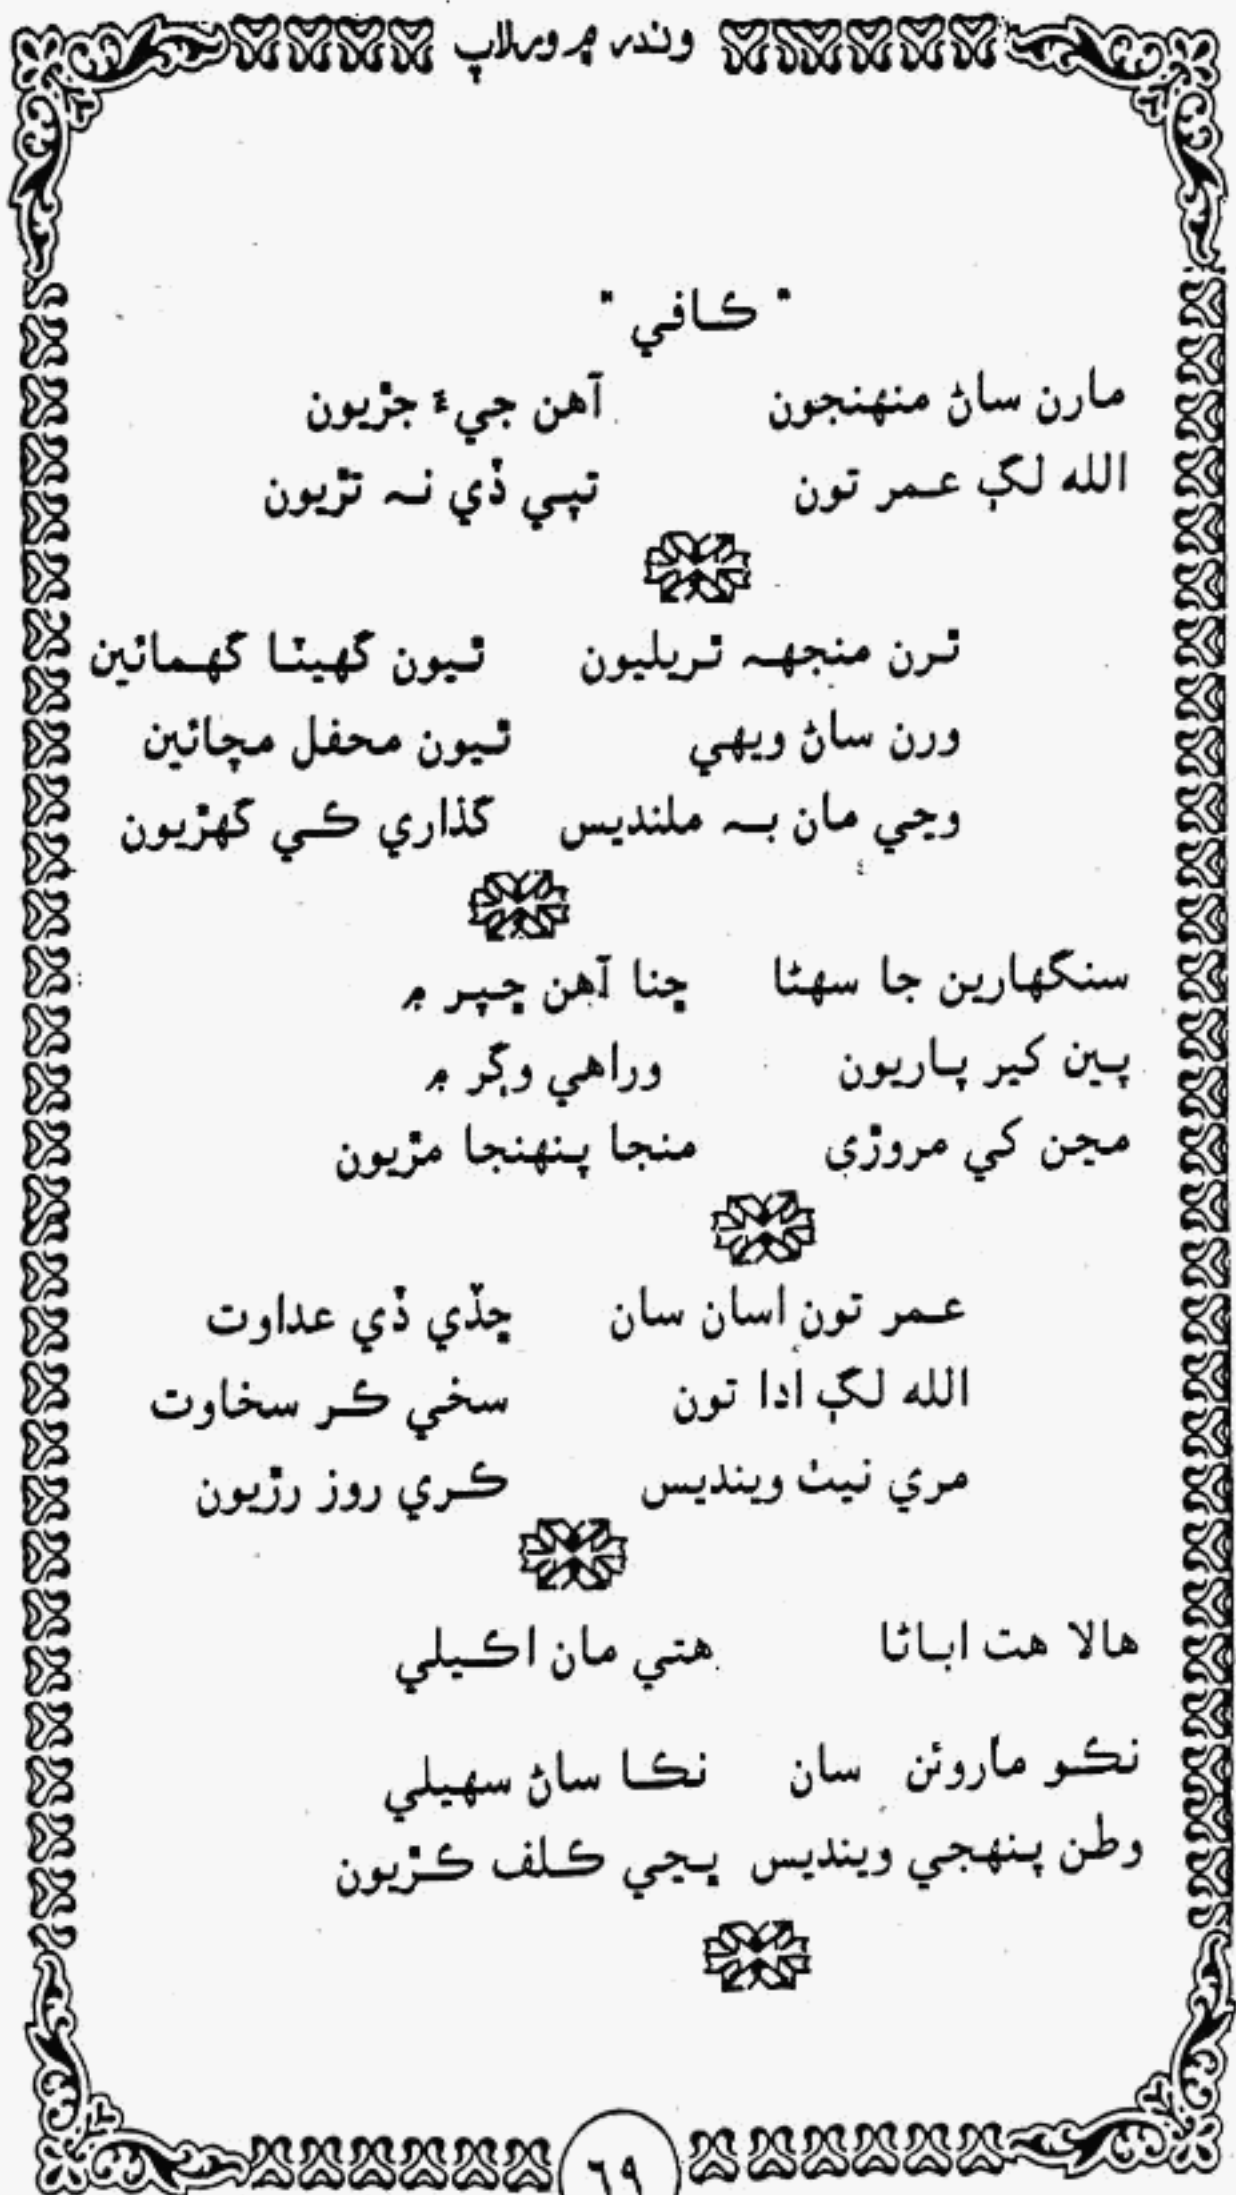 وندر ۾ ورلاپ
" ڪافي "
مارن ساڻ منهنجون آهن جيءَ جڙيون
الله لڳ عمر تون تپي ڏي نہ تڙيون
ٿرن منجهہ ٿريليون ٿيون گهيٽا گهمائين
ورن ساڻ ويهي ٿيون محفل مچائين
وڃي مان بہ ملنديس گذاري ڪي گهڙيون
سنگهارين جا سهڻا ڇنا آهن ڇپر ۾
پين کير پاريون وراهي وڳر ۾
مڃن کي مروڙي منجا پنهنجا مڙيون
عمر تون اسان سان ڇڏي ڏي عداوت
الله لڳ ادا تون سخي ڪر سخاوت
مري نيٺ وينديس ڪري روز رڙيون
هالا هت اباڻا هتي مان اڪيلي
نڪو ماروئن سان نڪا ساڻ سهيلي
وطن پنهجي وينديس ڀڃي ڪلف ڪڙيون
٦٩